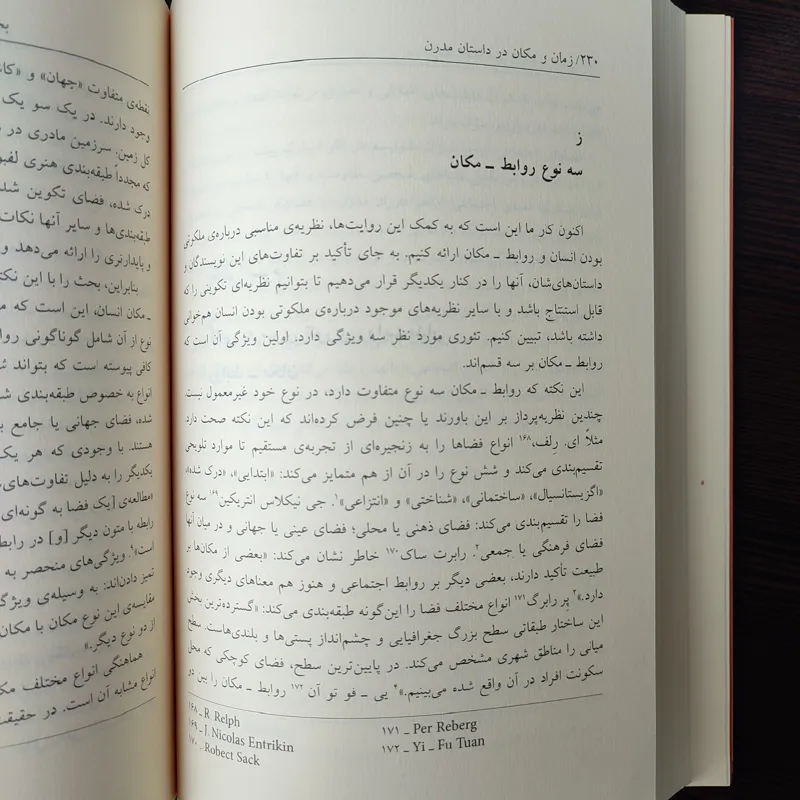 ۲۳۰/ زمان و مکان در داستان مدرن
ز
سه نوع روابط ـ مکان
اکنون کار ما این است که به کمک این روایت‌ها، نظریه‌ی مناسبی درباره‌ی ملکوتی
بودن انسان و روابط ـ مکان ارائه کنیم. به جای تأکید بر تفاوت‌های این نویسندگان و
داستان‌های‌شان، آنها را در کنار یکدیگر قرار می‌دهیم تا بتوانیم نظریه‌ای تکوینی را که
قابل استنتاج باشد و با سایر نظریه‌های موجود درباره‌ی ملکوتی بودن انسان هم‌خوانی
داشته باشد، تبیین کنیم. تئوری مورد نظر سه ویژگی دارد. اولین ویژگی آن است که
روابط ـ مکان بر سه قسم‌اند.
این نکته که روابط ـ مکان سه نوع متفاوت دارد، در نوع خود غیرمعمول نیست.
چندین نظریه‌پرداز بر این باورند یا چنین فرض کرده‌اند که این نکته صحت دارد.
مثلاً ای. رِلف،۱۶۸ انواع فضاها را به زنجیره‌ای از تجربه‌ی مستقیم تا موارد تلویحی
تقسیم‌بندی می‌کند و شش نوع را در آن از هم متمایز می‌کند: «ابتدایی»، «درک شده»،
«اگزیستانسیال»، «ساختمانی»، «شناختی» و «انتزاعی»۱. جی نیکلاس انتریکین۱۶۹ سه نوع
فضا را تقسیم‌بندی می‌کند: فضای ذهنی یا محلی؛ فضای عینی یا جهانی و در میان آنها
فضای فرهنگی یا جمعی۲. رابرت ساک۱۷۰ خاطر نشان می‌کند: «بعضی از مکان‌ها بر
طبیعت تأکید دارند، بعضی دیگر بر روابط اجتماعی و هنوز هم معناهای دیگری وجود
دارد.»۳ پِر رابرگ۱۷۱ انواع مختلف فضا را این‌گونه طبقه‌بندی می‌کند: «گسترده‌ترین بخش
این ساختار طبقاتی سطح بزرگ جغرافیایی و چشم‌انداز پستی‌ها و بلندی‌هاست. سطح
میانی را مناطق شهری مشخص می‌کند. در پایین‌ترین سطح، فضای کوچکی که محل
سکونت افراد در آن واقع شده می‌بینیم.»۴ یی ـ فو تو آن۱۷۲ روابط ـ مکان را بین دو
۱۶۸ ـ R. Relph
۱۶۹ ـ J. Nicolas Entrikin
۱۷۰ ـ Robect Sack
۱۷۱ ـ Per Reberg
۱۷۲ ـ Yi ـ Fu Tuan
نقطه‌ی متفاوت «جهان» و
وجود دارند. در یک سو یک
کل زمین. سرزمین مادری در
که مجدداً طبقه‌بندی هنری
درک شده، فضای تکوین
طبقه‌بندی‌ها و سایر آنها نکات
و پایدارتری را ارائه می‌دهد و
بنابراین، بحث را با این نکته
ـ مکان انسان، این است که
نوع از آن شامل گوناگونی
کافی پیوسته است که بتواند
انواع به خصوص طبقه‌بندی
شده، فضای جهانی یا جامع
هستند. با وجودی که هر یک
یکدیگر را به دلیل تفاوت‌های
«مطالعه‌ی [یک فضا به گونه‌ای
رابطه با متون دیگر [و] در
است»۱. ویژگی‌های منحصر به
تمیز دادن‌اند: به وسیله‌ی
مقایسه‌ی این نوع مکان با
از دو نوع دیگر.»
هماهنگی انواع مختلف
انواع مشابه آن است. در